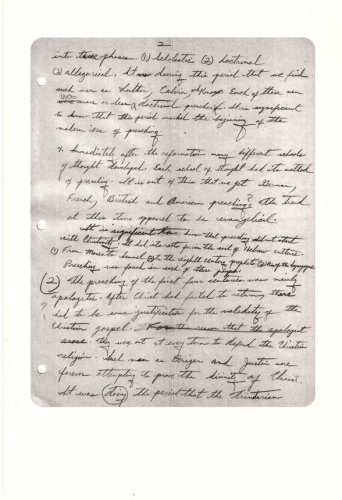 2
into three phases. (1) Scholastic (2) doctrinal
(3) allegorical. It was during this period that we find
such men as Luther, Calvin, Knox. Each of these men
was more or less a doctrinal preacher. It is significant
to know that this period marked the beginning of the
modern era of preaching
4. Immediately after the reformation many different schools
of thought developed. Each school of thought had its method
of preaching. It is out of this that we get German,
French, British and American preaching? The trend
at this time appeared to be evangelical.
It is significant that preaching did not start
with Christianity. It had its roots from the soil of Hebrew culture.
(1) From Mosaic (2) the eighth century prophets
Preaching was found in each of these
(2) The preaching of the first four centuries was mainly
? apologetic. After Christ had failed to return there
had to be some justification for the validity of the
Christian gospel. that the apologist
arose. They were at every turn to defend the Christian
religion. Such men as Origen and Justin were
forever attempting to prove the divinity of Christ.
It was during the period that the trinitarian